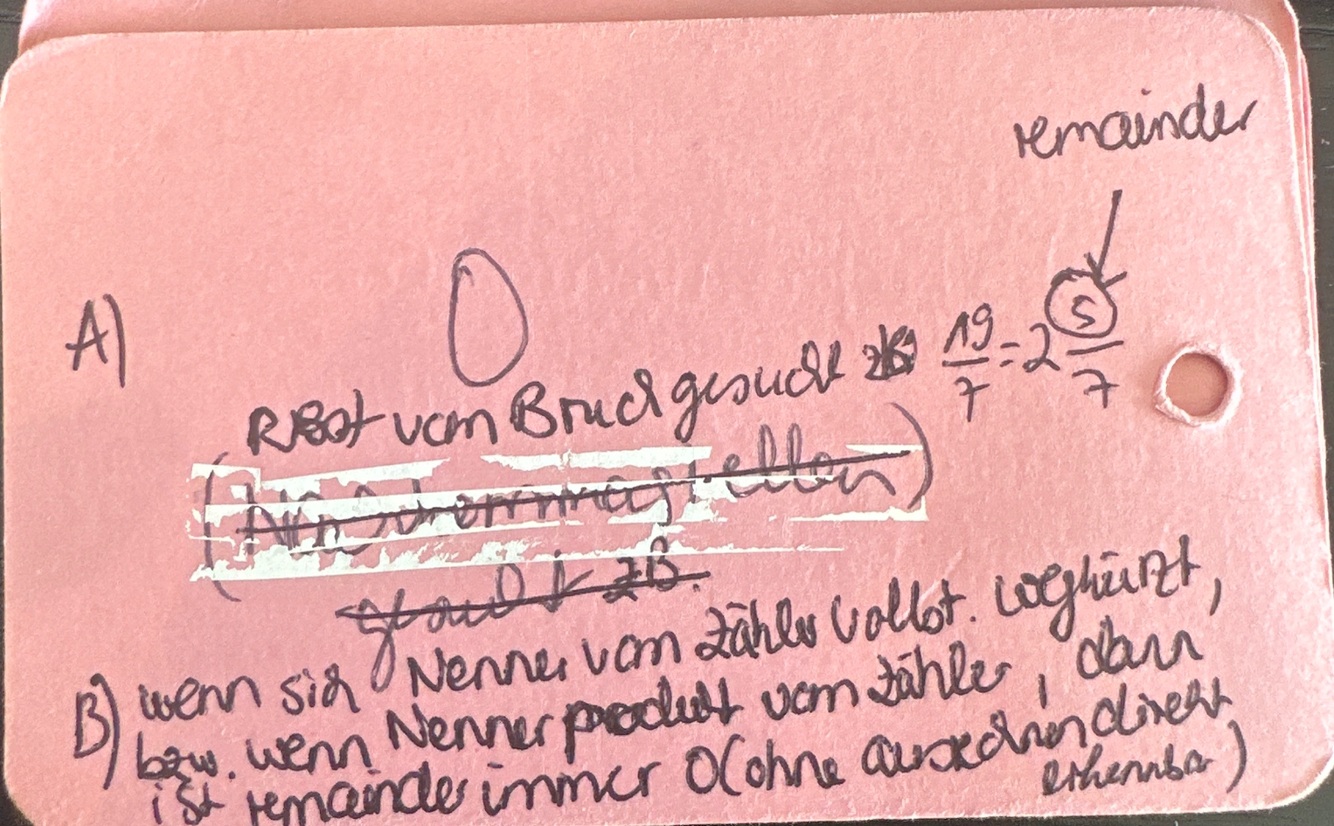 remainder
A) 0
Rest vom Bruch gesucht zB: 19/7 = 2 5/7
zB.
B) wenn sich Nenner vom Zähler vollst. wegkürzt,
bzw. wenn Nenner produkt vom Zähler, dann
ist remainder immer 0 (ohne ausrechnen direkt
erkennbar)